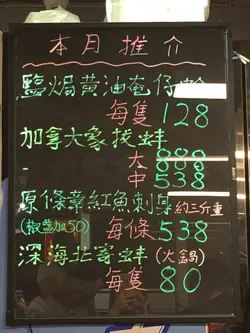 本月推介
鹽焗黃油奄仔蟹
每隻128
加拿大象拔蚌
大888
中538
原條章紅魚刺身 約三斤重
(椒鹽加50) 每條538
深海北寄蚌(火鍋)
每隻80